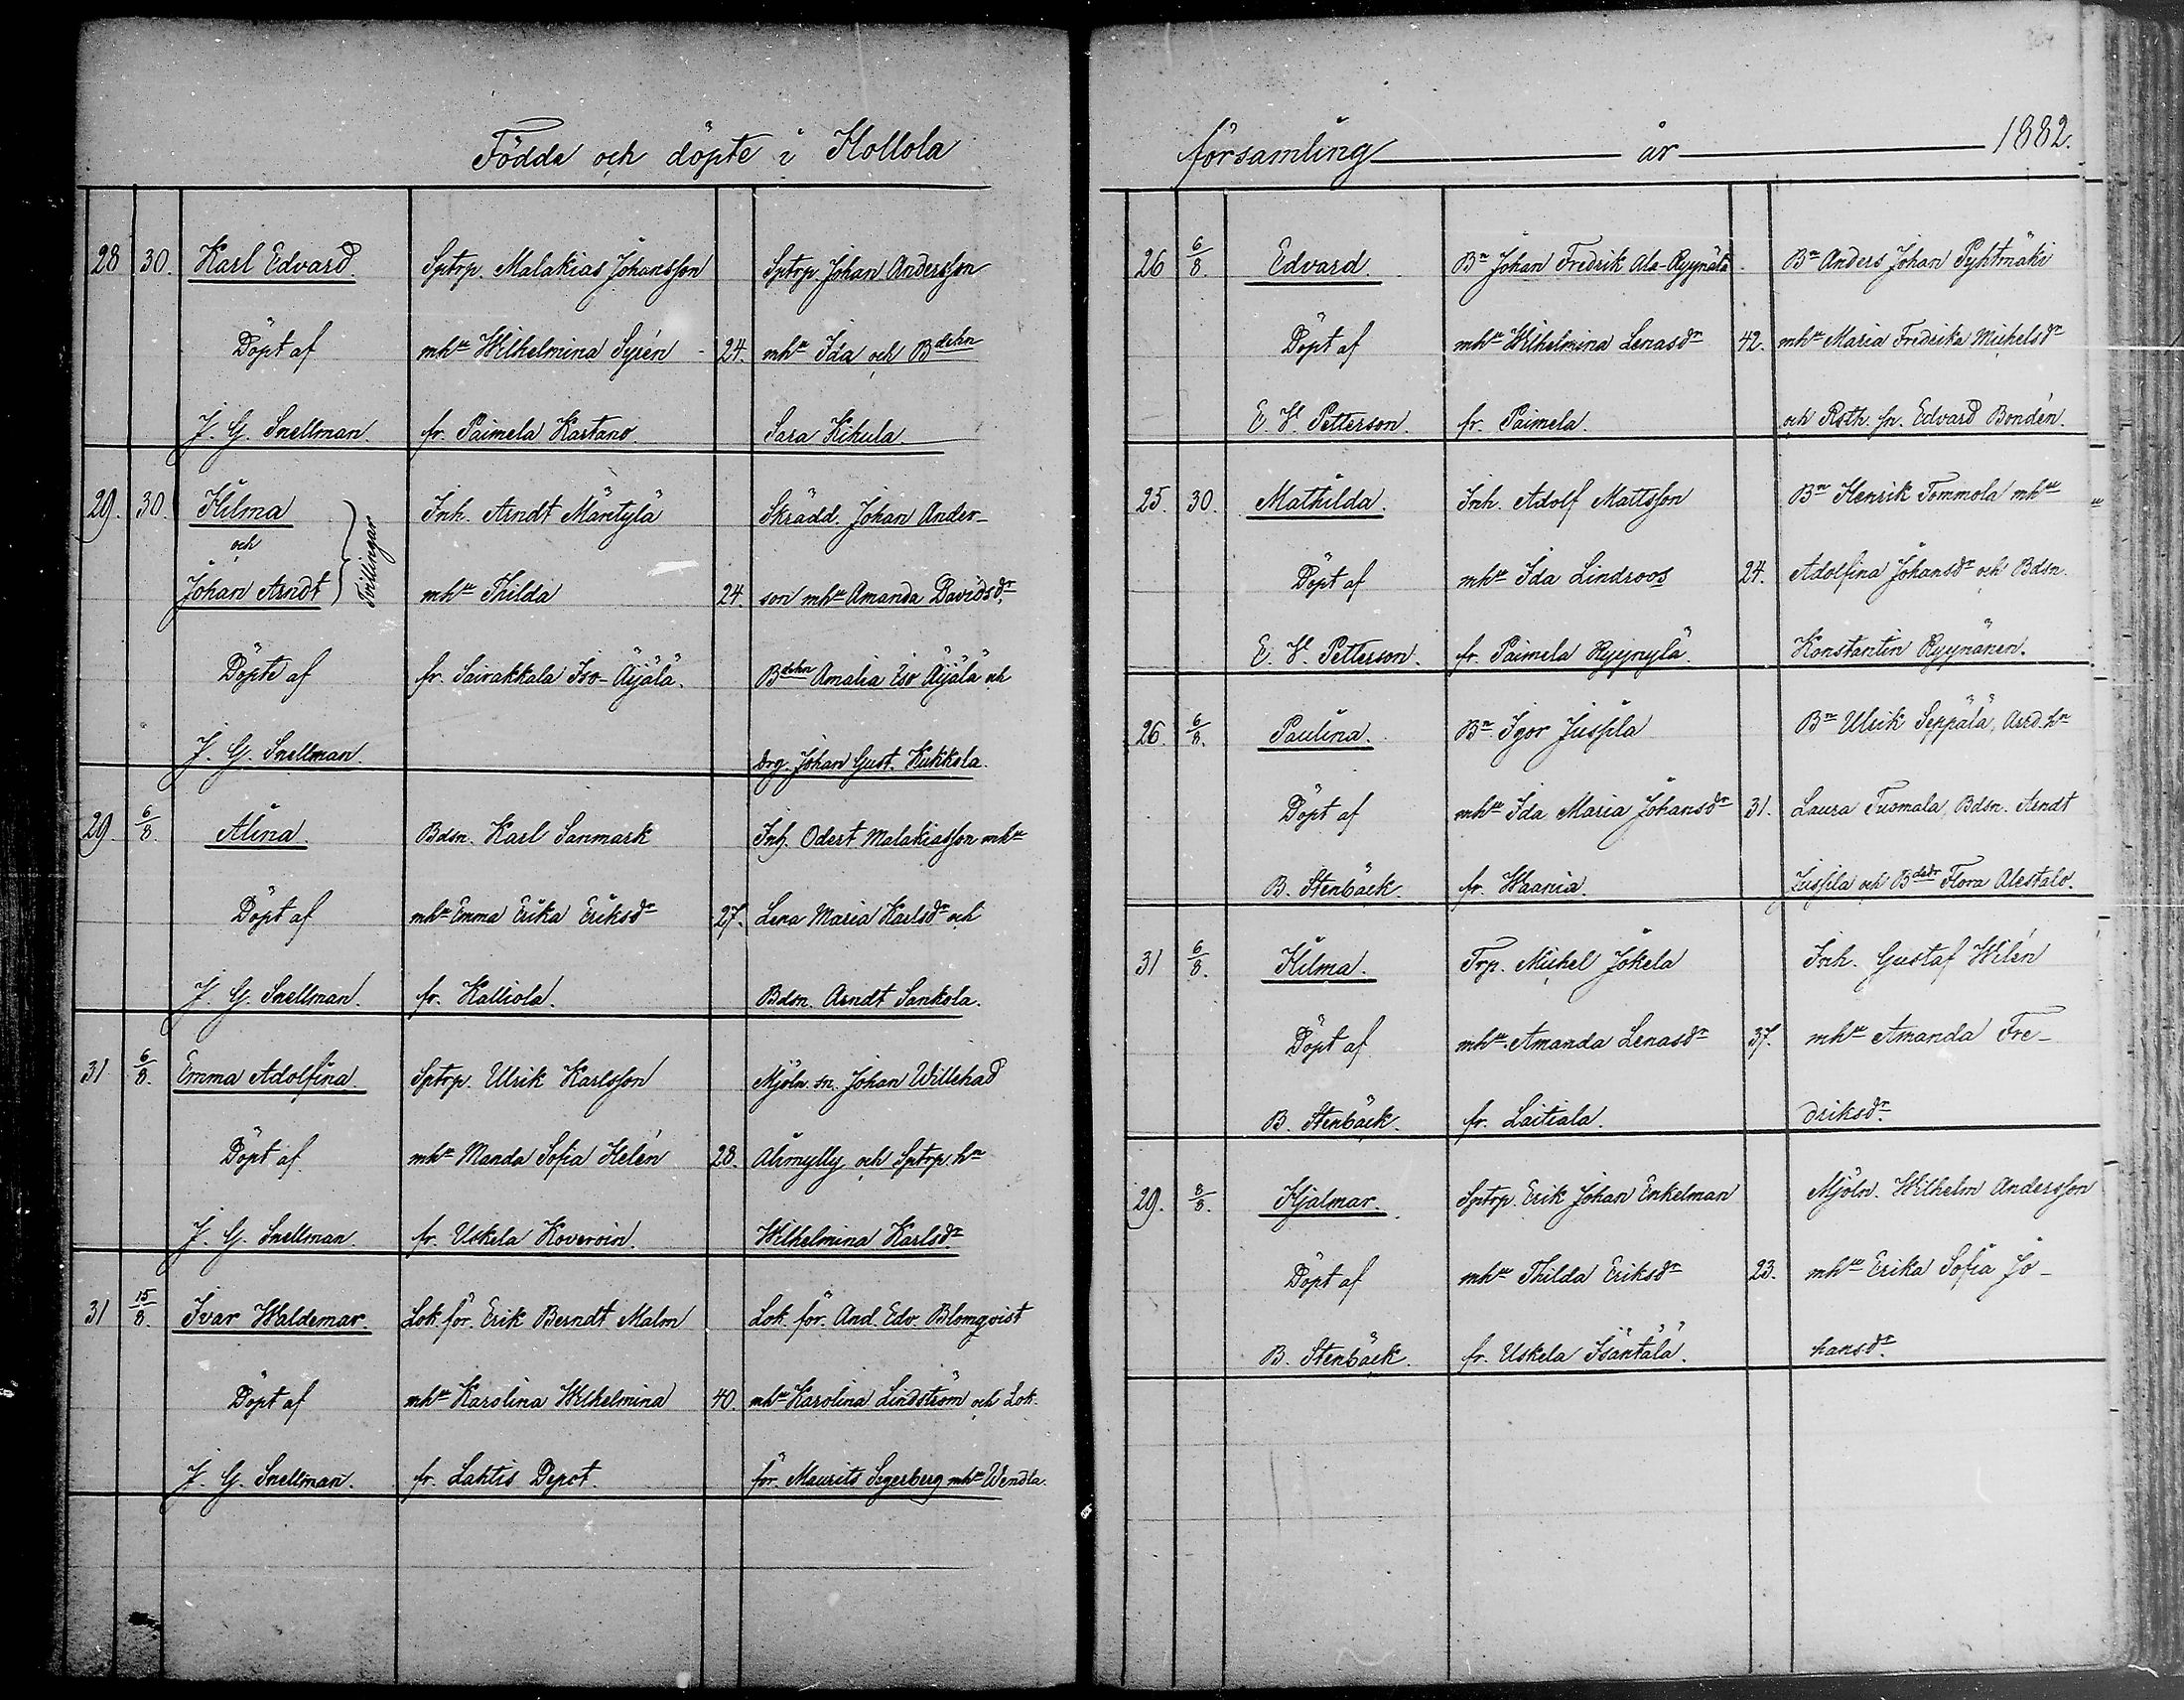 Födda och döpte i Hollola
28 30. Karl Edvard. Sptrp. Malakias Johansson Sptrp. Johan Andersson
Döpt af mhu Wilhelmina Syrén 24. mhu Ida och Bdehn
J. G. Snellman. fr. Paimela Kartano. Sara Kikula
29. 30. Hilma Inh. Arndt Mäntylä Skrädd. Johan Ander-
och
Tvillingar
Johan Arndt mhu Thilda 24. son mhu Amanda Davidsdr,
Döpte af fr. Sairakkala Iso-Äijälä. Bdehn Amalia Iso Äijälä och
J. G. Snellman. Drg. Johan Gust. Kukkola.
29. 6/8. Alina Bdsn. Karl Sanmark Inh. Odert Malakiasson mhu
Döpt af mhu Emma Erika Eriksdr 27. Lena Maria Karlsdr och
J. G. Snellman. fr. Kalliola. Bdsn. Arndt Sankola.
31 6/8. Emma Adolfina. Sptrp. Ulrik Karlsson Mjöln. sn. Johan Willehad
Döpt af mhu Manda Sofia Helén 28. Alimylly och Sptrp. hu
J. G. Snellman. fr. Uskela Koveroin. Wilhelmina Karlsdr.
31 15/8. Ivar Waldemar. Lok. för. Erik Berndt Malm Lok. för. And. Edv. Blomqvist
Döpt af mhu Karolina Wilhelmina 40. mhu Karolina Lindström och Lok.
J. G. Snellman. fr. Lahtis Depot. för. Maurits Segerberg mhu Wendla.
364
församling år 1882.
26 6/8. Edvard Bn Johan Fredrik Ala-Ryynälä. Bn Anders Johan Pyhtmäki
Döpt af mhu Wilhelmina Lenasdr 42. mhu Maria Fredrika Michelsdr
E. V. Petterson. fr. Paimela. och Rsth. sn. Edvard Bondén.
25. 30. Mathilda. Inh. Adolf Mattsson Bn Henrik Tommola mhu
Döpt af mhu Ida Lindroos 24. Adolfina Johansdr och Bdsn.
E. V. Petterson. fr. Paimela Ryynylä. Konstantin Ryynänen.
26. 6/8. Paulina. Bn Igor Jussila Bn Ulrik Seppälä, Ard. hu
Döpt af mhu Ida Maria Johansdr 31. Laura Tuomala, Bdsn. Arndt
B. Stenbäck. fr. Waania. Jussila och Bdedr Flora Alestalo.
31 6/8. Hilma. Trp. Michel Jokela Inh. Gustaf Wilén
Döpt af mhu Amanda Lenasdr 37. mhu Amanda Fre-
B. Stenbäck. fr. Laitiala. driksdr.
29. 8/8. Hjalmar. Sptrp. Erik Johan Enkelman Mjöln. Wilhelm Andersson
Döpt af mhu Thilda Eriksdr 23. mhu Erika Sofia Jo-
B. Stenbäck. fr. Uskela Isäntälä. hansdr.